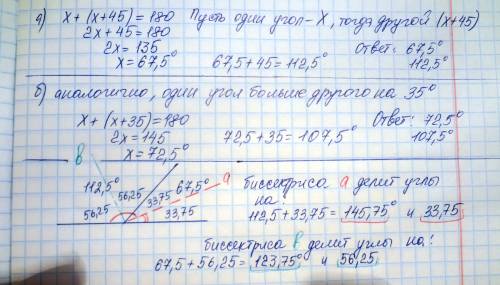 а) x + (x+45) = 180 Пусть один угол - X, тогда другой (x+45)
2x + 45 = 180 Ответ: 67,5°
2x = 135 112,5°
x = 67,5° 67,5 + 45 = 112,5°
б) аналогично, один угол больше другого на 35°
x + (x+35) = 180 Ответ: 72,5°
2x = 145 72,5 + 35 = 107,5° 107,5°
x = 72,5°
в
112,5° 56,25 67,5° а
56,25 33,75 33,75
биссектриса а делит углы
на:
112,5 + 33,75 = 145,75° и 33,75
биссектриса в делит углы на:
67,5 + 56,25 = 123,75° и 56,25